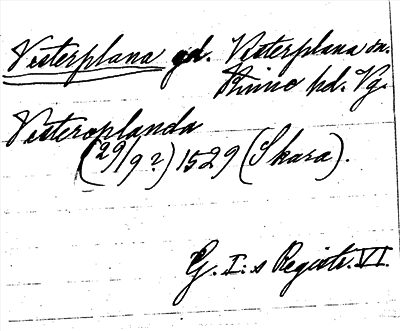 Vesterplana gd. Västerplana sn.
Kinne hd. Vg.
Vesteroplanda
(29/9 ?) 1529 (Skara).
G. I:s Registr. VI.